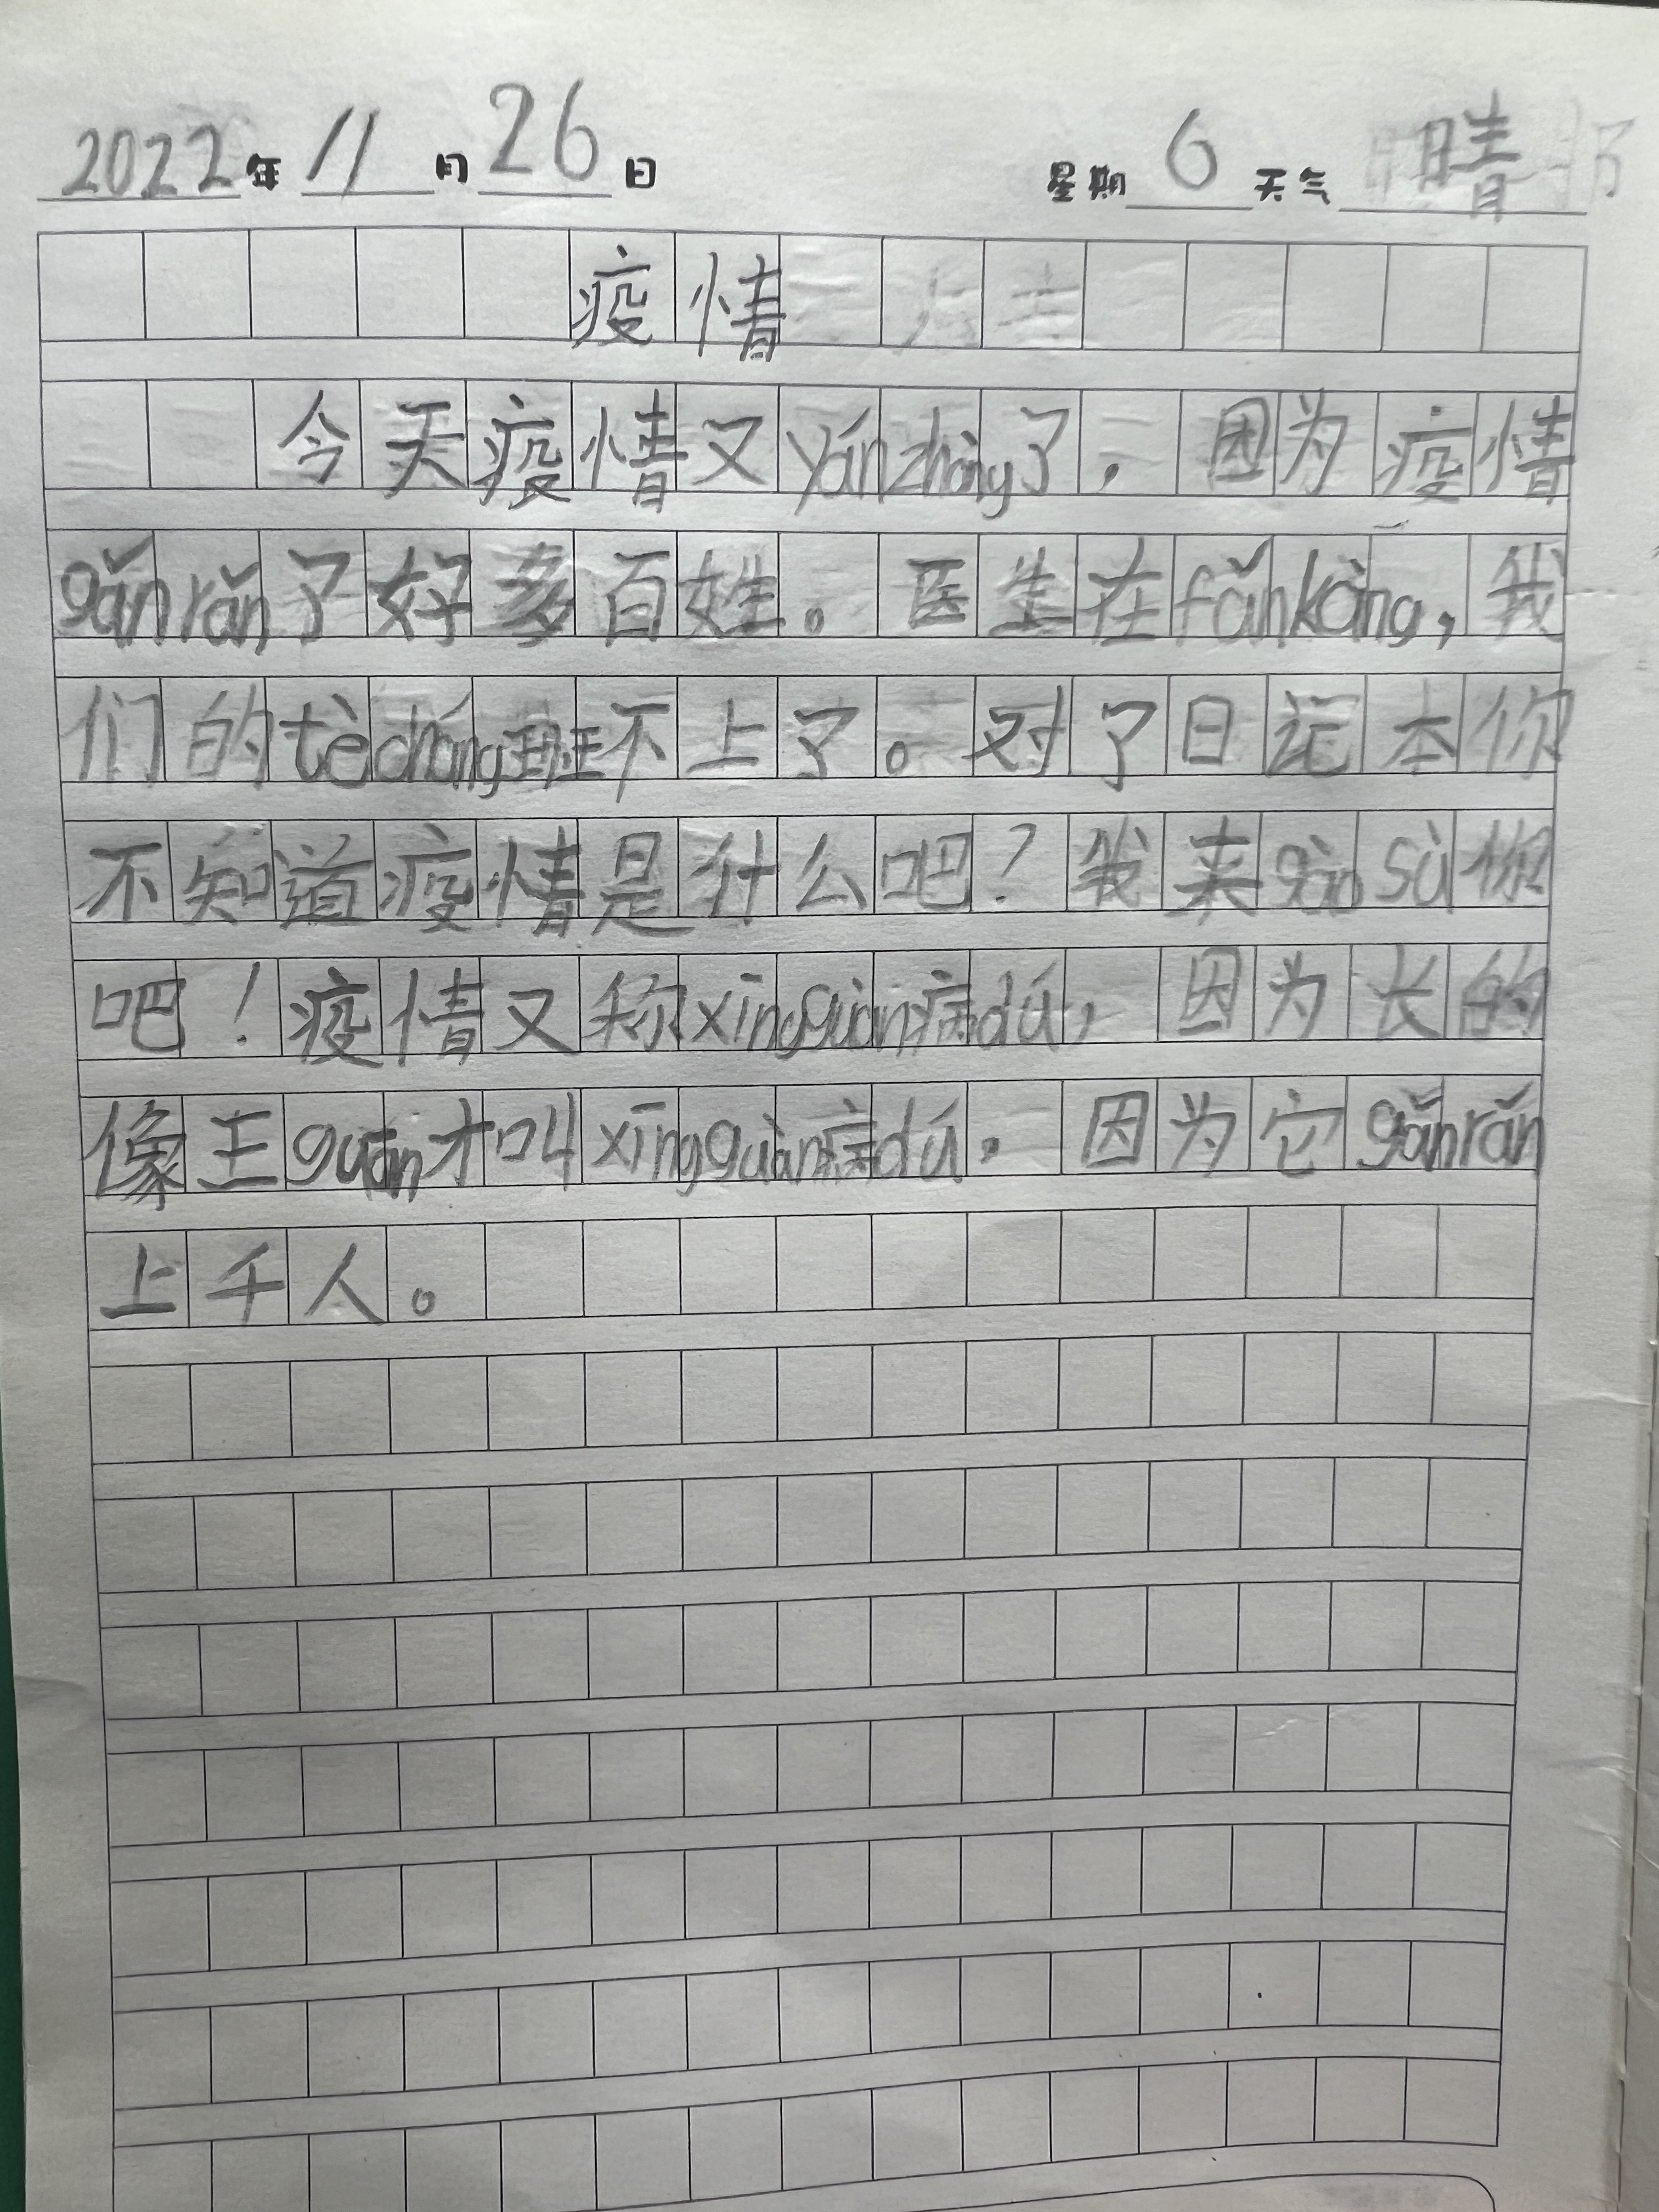 2022年11月26日 星期6天气晴
疫情
今天疫情又yánzhòng了，因为疫情
gǎnrǎn了好多百姓。医生在fǎnkàng，我
们的tècháng班不上了。对了日记本你
不知道疫情是什么吧？我来gàosù你
吧！疫情又称xīnguàn病dú，因为长的
像王guān才叫xīngguàn病dú，因为它gǎnrǎn
上千人。